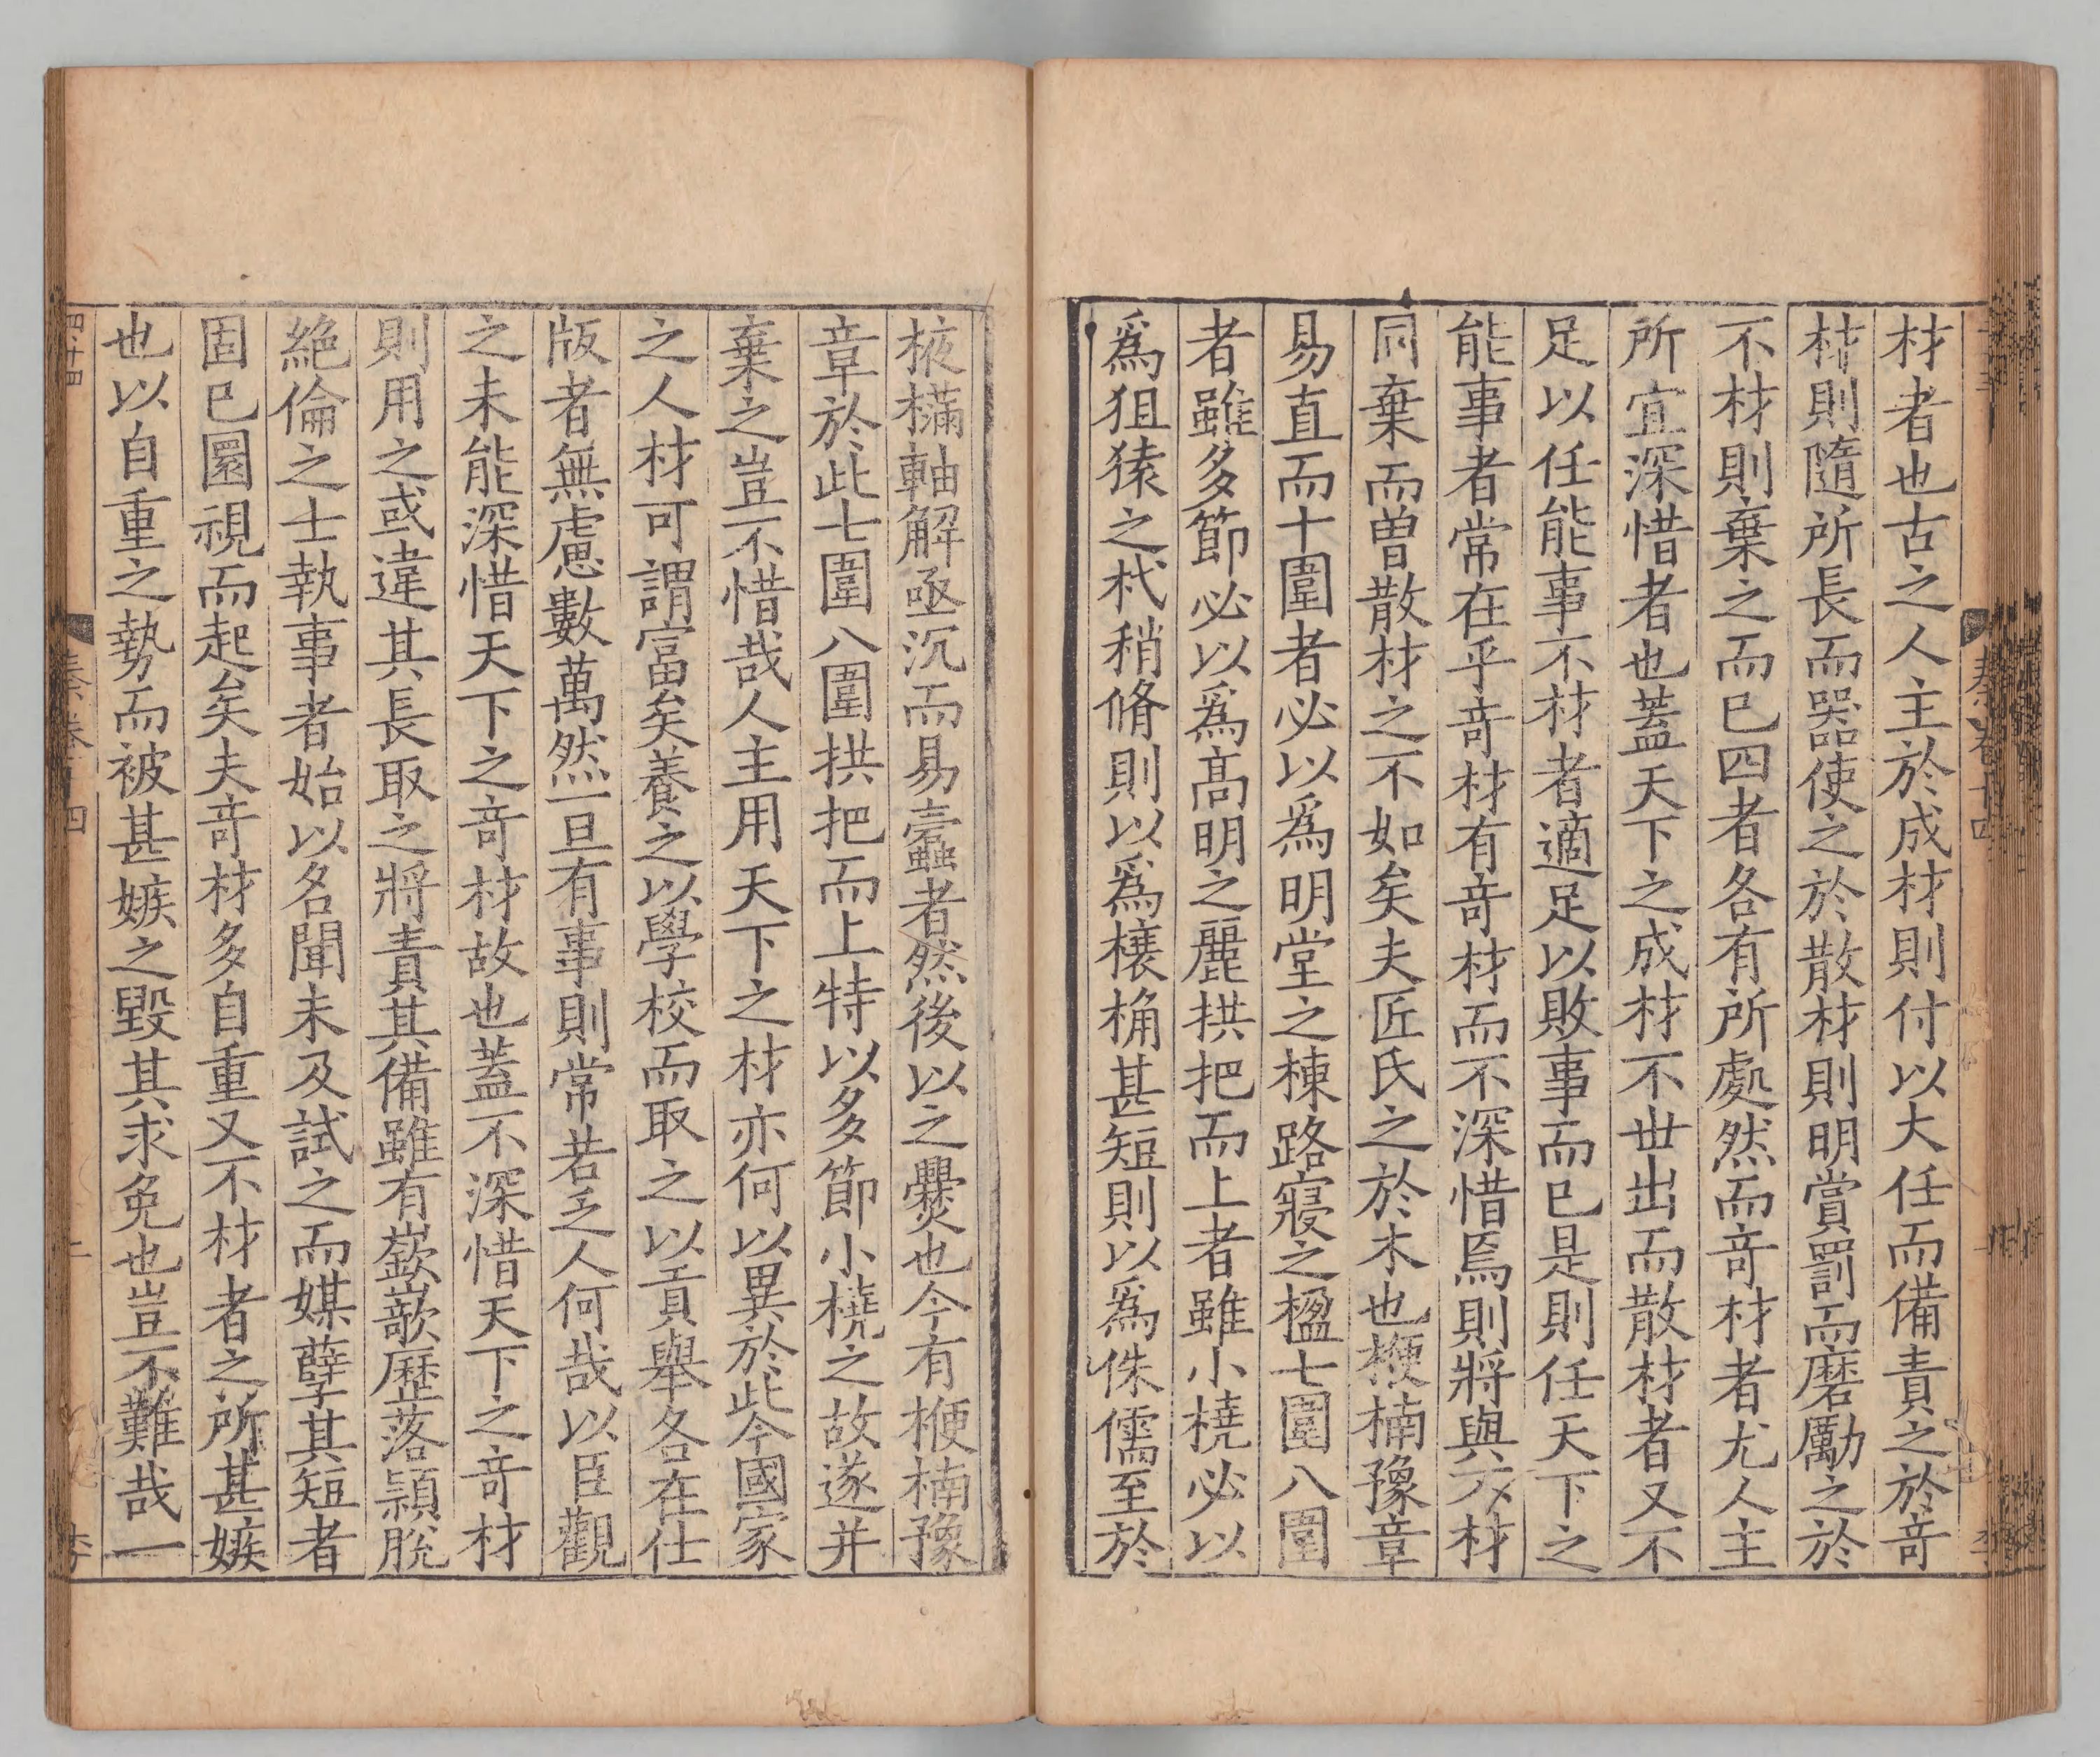 材者也古之人主於成材則付以大任而備責之於竒
材則隨所長而器使之於散材則明賞罰而磨勵之於
不材則棄之而已四者各有所處然而竒材者尤人主
所宜深惜者也蓋天下之成材不世出而散材者又不
足以任能事不材者適足以敗事而已是則任天下之
能事者常在乎竒材有竒材而不深惜焉則將與不材
同棄而曽散材之不如矣夫匠氏之於木也楩楠豫章
易直而十圍者必以爲明堂之棟路寢之楹七圍八圍
者雖多節必以爲髙明之麗拱把而上者雖小橈必以
爲狙猿之杙稍脩則以爲榱桷甚短則以爲侏儒至於
液樠軸解亟沉而易蠧者然後以之爨也今有楩楠豫
章於此七圍八圍拱把而上特以多節小橈之故遂并
棄之豈不惜哉人主用天下之材亦何以異於此今國家
之人材可謂富矣養之以學校而取之以貢舉各在仕
版者無慮數萬然一旦有事則常若乏人何哉以臣觀
之未能深惜天下之竒材故也蓋不深惜天下之竒材
則用之或違其長取之將責其備雖有嶔㟢歴落頴脫
絶倫之士執事者始以名聞未及試之而媒孽其短者
固已圜視而起矣夫竒材多自重又不材者之所甚嫉
也以自重之勢而被甚嫉之毀其求免也豈不難哉一
秦卷十四